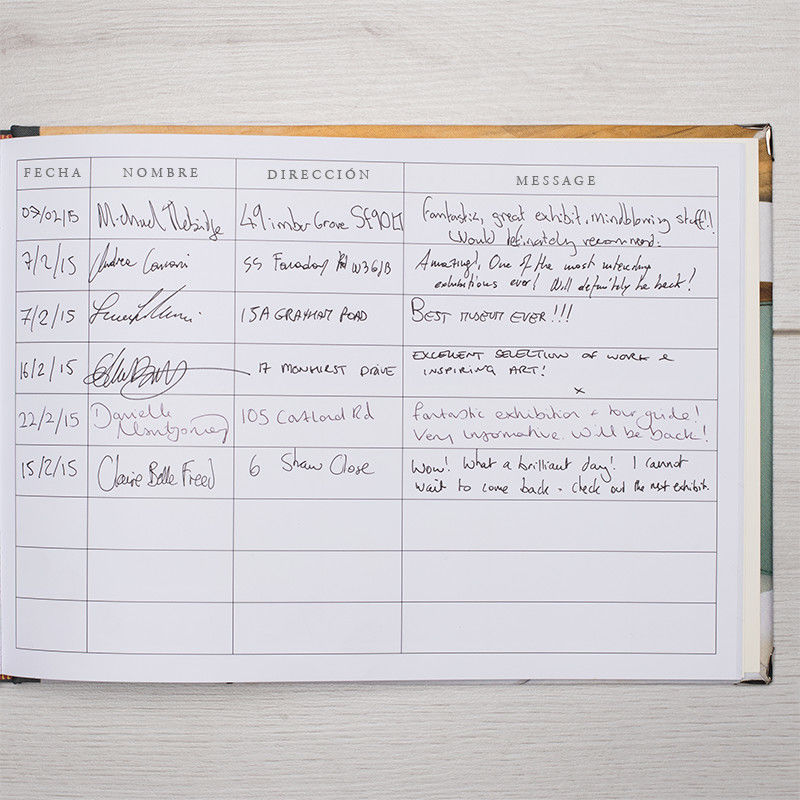 FECHA NOMBRE DIRECCIÓN MESSAGE
07/02/15 Michael Fantastic, great exhibit, mindblowing stuff!!
Would definately recommend.
7/2/15 Andrea 55 Faraday Rd W36JB Amazing!, One of the most interesting
exhibitions ever! Will definitely be back!
7/2/15 15A GRAYHAM ROAD BEST MUSEUM EVER!!!
16/2/15 17 MONHIRST DRIVE EXCELLENT SELECTION OF WORK &
INSPIRING ART!
x
22/2/15 Danielle 105 Rd fantastic exhibition + tour guide!
Montgomery Very informative. Will be back!
15/2/15 Claire Belle Freed 6 Shaw Close Wow! What a brilliant day! I cannot
wait to come back - check out the next exhibit.